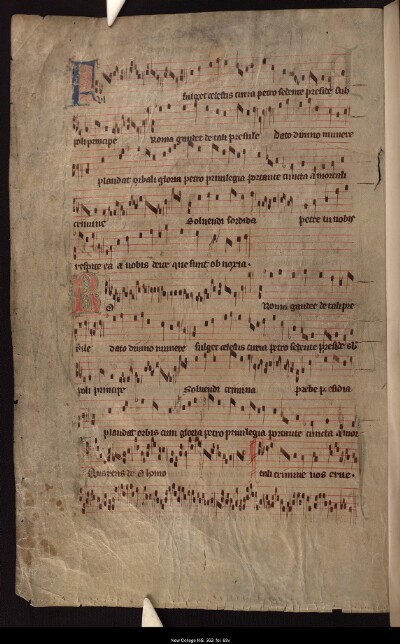 fulget celestis curia petro sedente preside sub
poli principe Roma gaudet de tali presule dato divino munere
plaudat orbis gloria petro privilegia portante cuncta a mortali
crimine Solvendi sordida petre tu nobis
respice ea a nobis deice que sunt ob noxia.
Roma gaudet de tali pre
sule dato divino munere fulget celestis curia petro sedente preside sb
poli principe Solvendi crimina prebe presidia
plaudat orbis cum gloria petro privilegia portante cuncta a mor
de O homo tali crimine nos erue.
New College MS. 362, fol. 89v